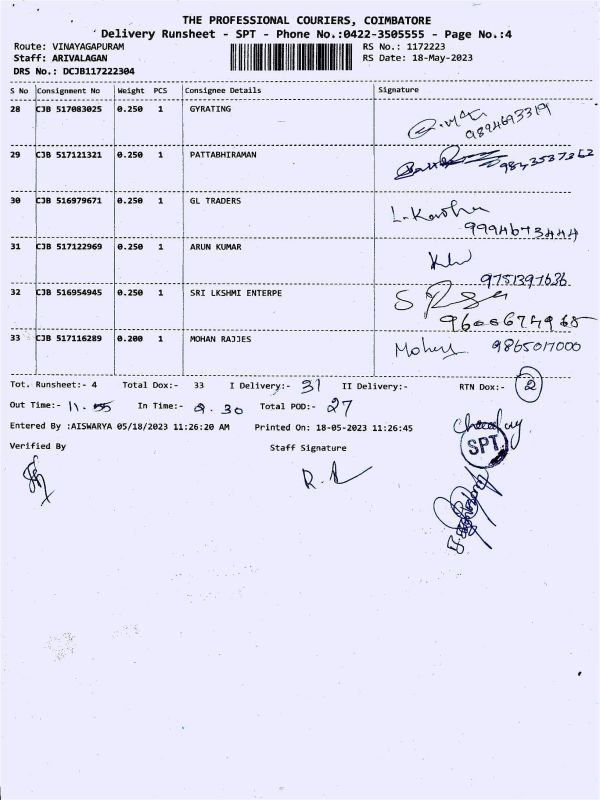 THE PROFESSIONAL COURIERS, COIMBATORE
Delivery Runsheet - SPT - Phone No.:0422-3505555 - Page No.:4
Route: VINAYAGAPURAM RS No.: 1172223
Staff: ARIVALAGAN RS Date: 18-May-2023
DRS No.: DCJB117222304
S No Consignment No Weight PCS Consignee Details Signature
28 CJB 517083025 0.250 1 GYRATING
9894693319
29 CJB 517121321 0.250 1 PATTABHIRAMAN
30 CJB 516979671 0.250 1 GL TRADERS
9994673444
31 CJB 517122969 0.250 1 ARUN KUMAR
9751397636
32 CJB 516954945 0.250 1 SRI LKSHMI ENTERPE
33 CJB 517116289 0.200 1 MOHAN RAJJES 9865017000
Tot. Runsheet:- 4 Total Dox:- 33 I Delivery:- 31 II Delivery:- RTN Dox:- 2
Out Time:- 11.55 In Time:- 9.30 Total POD:- 27
Entered By :AISWARYA 05/18/2023 11:26:20 AM Printed On: 18-05-2023 11:26:45
Verified By Staff Signature
SPT